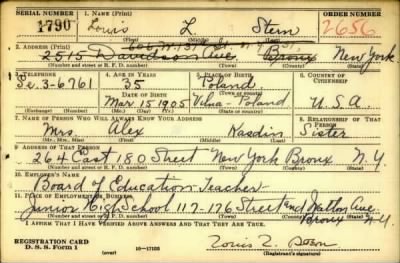 SERIAL NUMBER 1. NAME (Print) ORDER NUMBER
1790 Louis L. Stern 2656
(First) (Middle) (Last)
2. ADDRESS (Print)
2515 Davidson Ave. Bronx New York
(Number and street or R. F. D. number) (Town) (County) (State)
3. TELEPHONE 4. AGE IN YEARS 5. PLACE OF BIRTH 6. COUNTRY OF CITIZENSHIP
Se. 3-6761 35 Poland
DATE OF BIRTH (Town or county)
Mar 15 1905 Vilna - Poland U.S.A.
(Exchange) (Number) (Mo.) (Day) (Yr.) (State or country)
7. NAME OF PERSON WHO WILL ALWAYS KNOW YOUR ADDRESS 8. RELATIONSHIP OF THAT PERSON
Mrs. Alex Kasdin Sister
(Mr., Mrs., Miss) (First) (Middle) (Last)
9. ADDRESS OF THAT PERSON
264 East 180 Street New York Bronx N.Y.
(Number and street or R. F. D. number) (Town) (County) (State)
10. EMPLOYER'S NAME
Board of Education Teacher
11. PLACE OF EMPLOYMENT OR BUSINESS
Junior High School 117-176 Street and Walton Ave.
Bronx N.Y.
(Number and street or R. F. D. number) (Town) (County) (State)
I AFFIRM THAT I HAVE VERIFIED ABOVE ANSWERS AND THAT THEY ARE TRUE.
REGISTRATION CARD
D. S. S. Form 1 (over) 16-17105 Louis L.
(Registrant's signature)